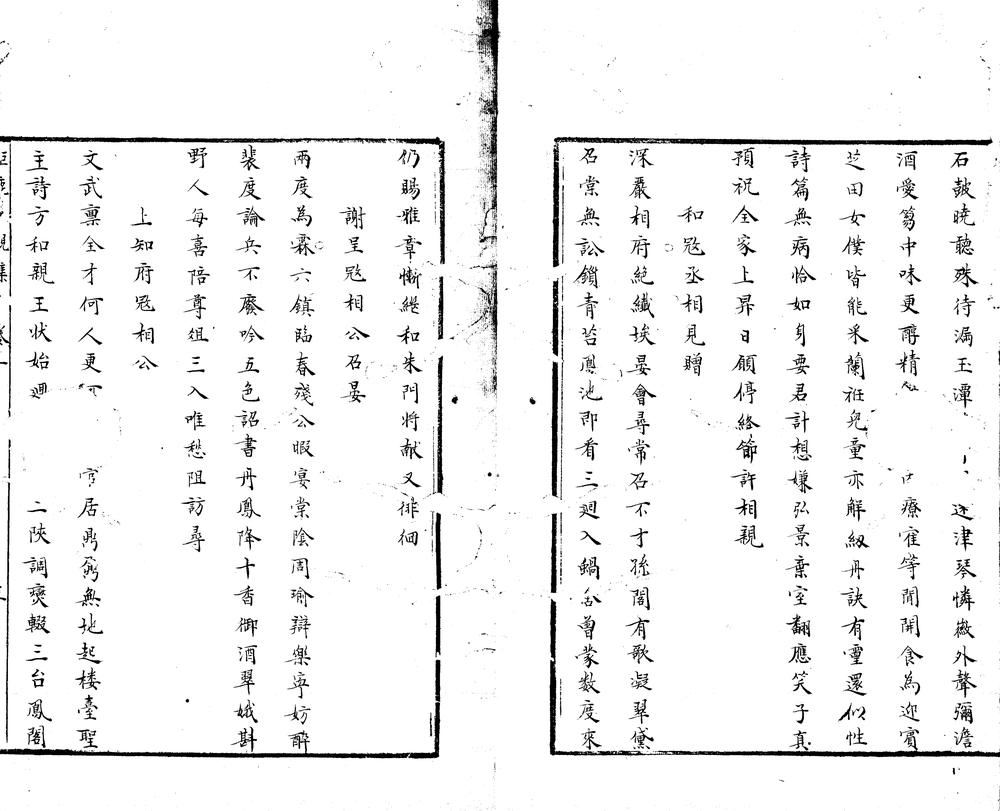 石皷曉聽殊待漏玉潭　　　迯津琴憐嶽外聲彌澹
酒愛篘中味更醇精　　　療寉等閒開食為迎賓
芝田女僕皆能采蘭衹兒童亦解紉丹訣有靈還似性
詩篇無病恰如身要君計想嫌弘景棄室翻應笑子真
預祝全家上昇日願停絳節許相親
和寇丞相見贈
深嚴相府絕纖埃晏會尋常召不才孫閤有歌凝翠黛
召棠無訟鎖青苔鳳池即看三迴入鍋谷曾蒙数度來
仍賜雅章慚継和朱門将献又徘徊
謝呈寇相公召晏
兩度為霖六鎮臨春殘公暇宴棠陰周瑜辯樂寜妨醉
裴度論兵不廢吟五色詔書丹鳳降十香御酒翠娥斟
野人每喜陪尊俎三入唯愁阻訪尋
上知府寇相公
文武禀全才何人更　　官居鼎鼐無地起楼臺聖
主詩方和親王状始迴　　二陜調燮輟三台鳳閣